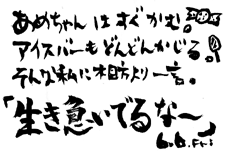 あめちゃんはすぐかむ。
アイスバーもどんどんかじる。
そんな私に相方より一言。
「生き急いでるな〜」